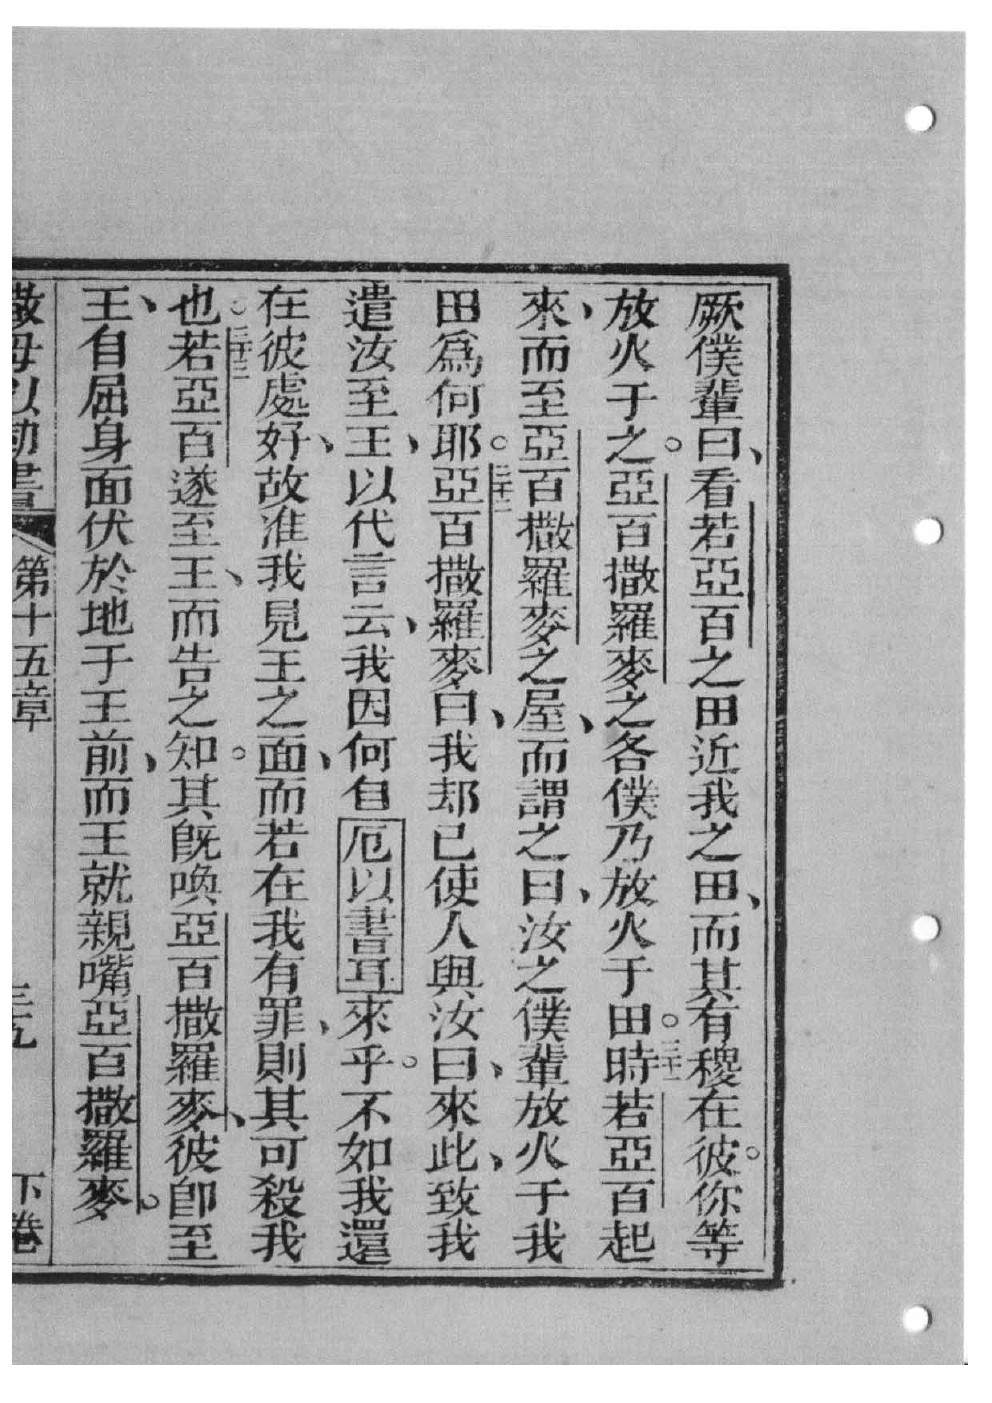 厥僕輩曰、看若亞百之田近我之田、而其有稷在彼。你等
放火于之。亞百撒羅麥之各僕乃放火于田。三十一時若亞百起
來、而至亞百撒羅麥之屋、而謂之曰、汝之僕輩放火于我
田爲何耶。三十二亞百撒羅麥曰、我却已使人與汝曰、來此、致我
遣汝至王、以代言云、我因何自厄以書耳來乎。不如我還
在彼處好、故准我見王之面、而若在我有罪、則其可殺我
也。三十三若亞百遂至王、而告之知。其旣喚亞百撒羅麥、彼卽至
王、自屈身面伏於地于王前、而王就親嘴亞百撒羅麥。
撒母以勒書 第十五章 三九 下卷